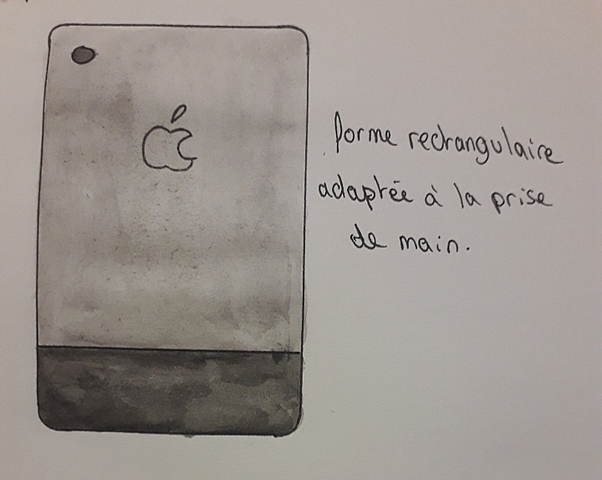 forme rectangulaire
adaptée à la prise
de main.